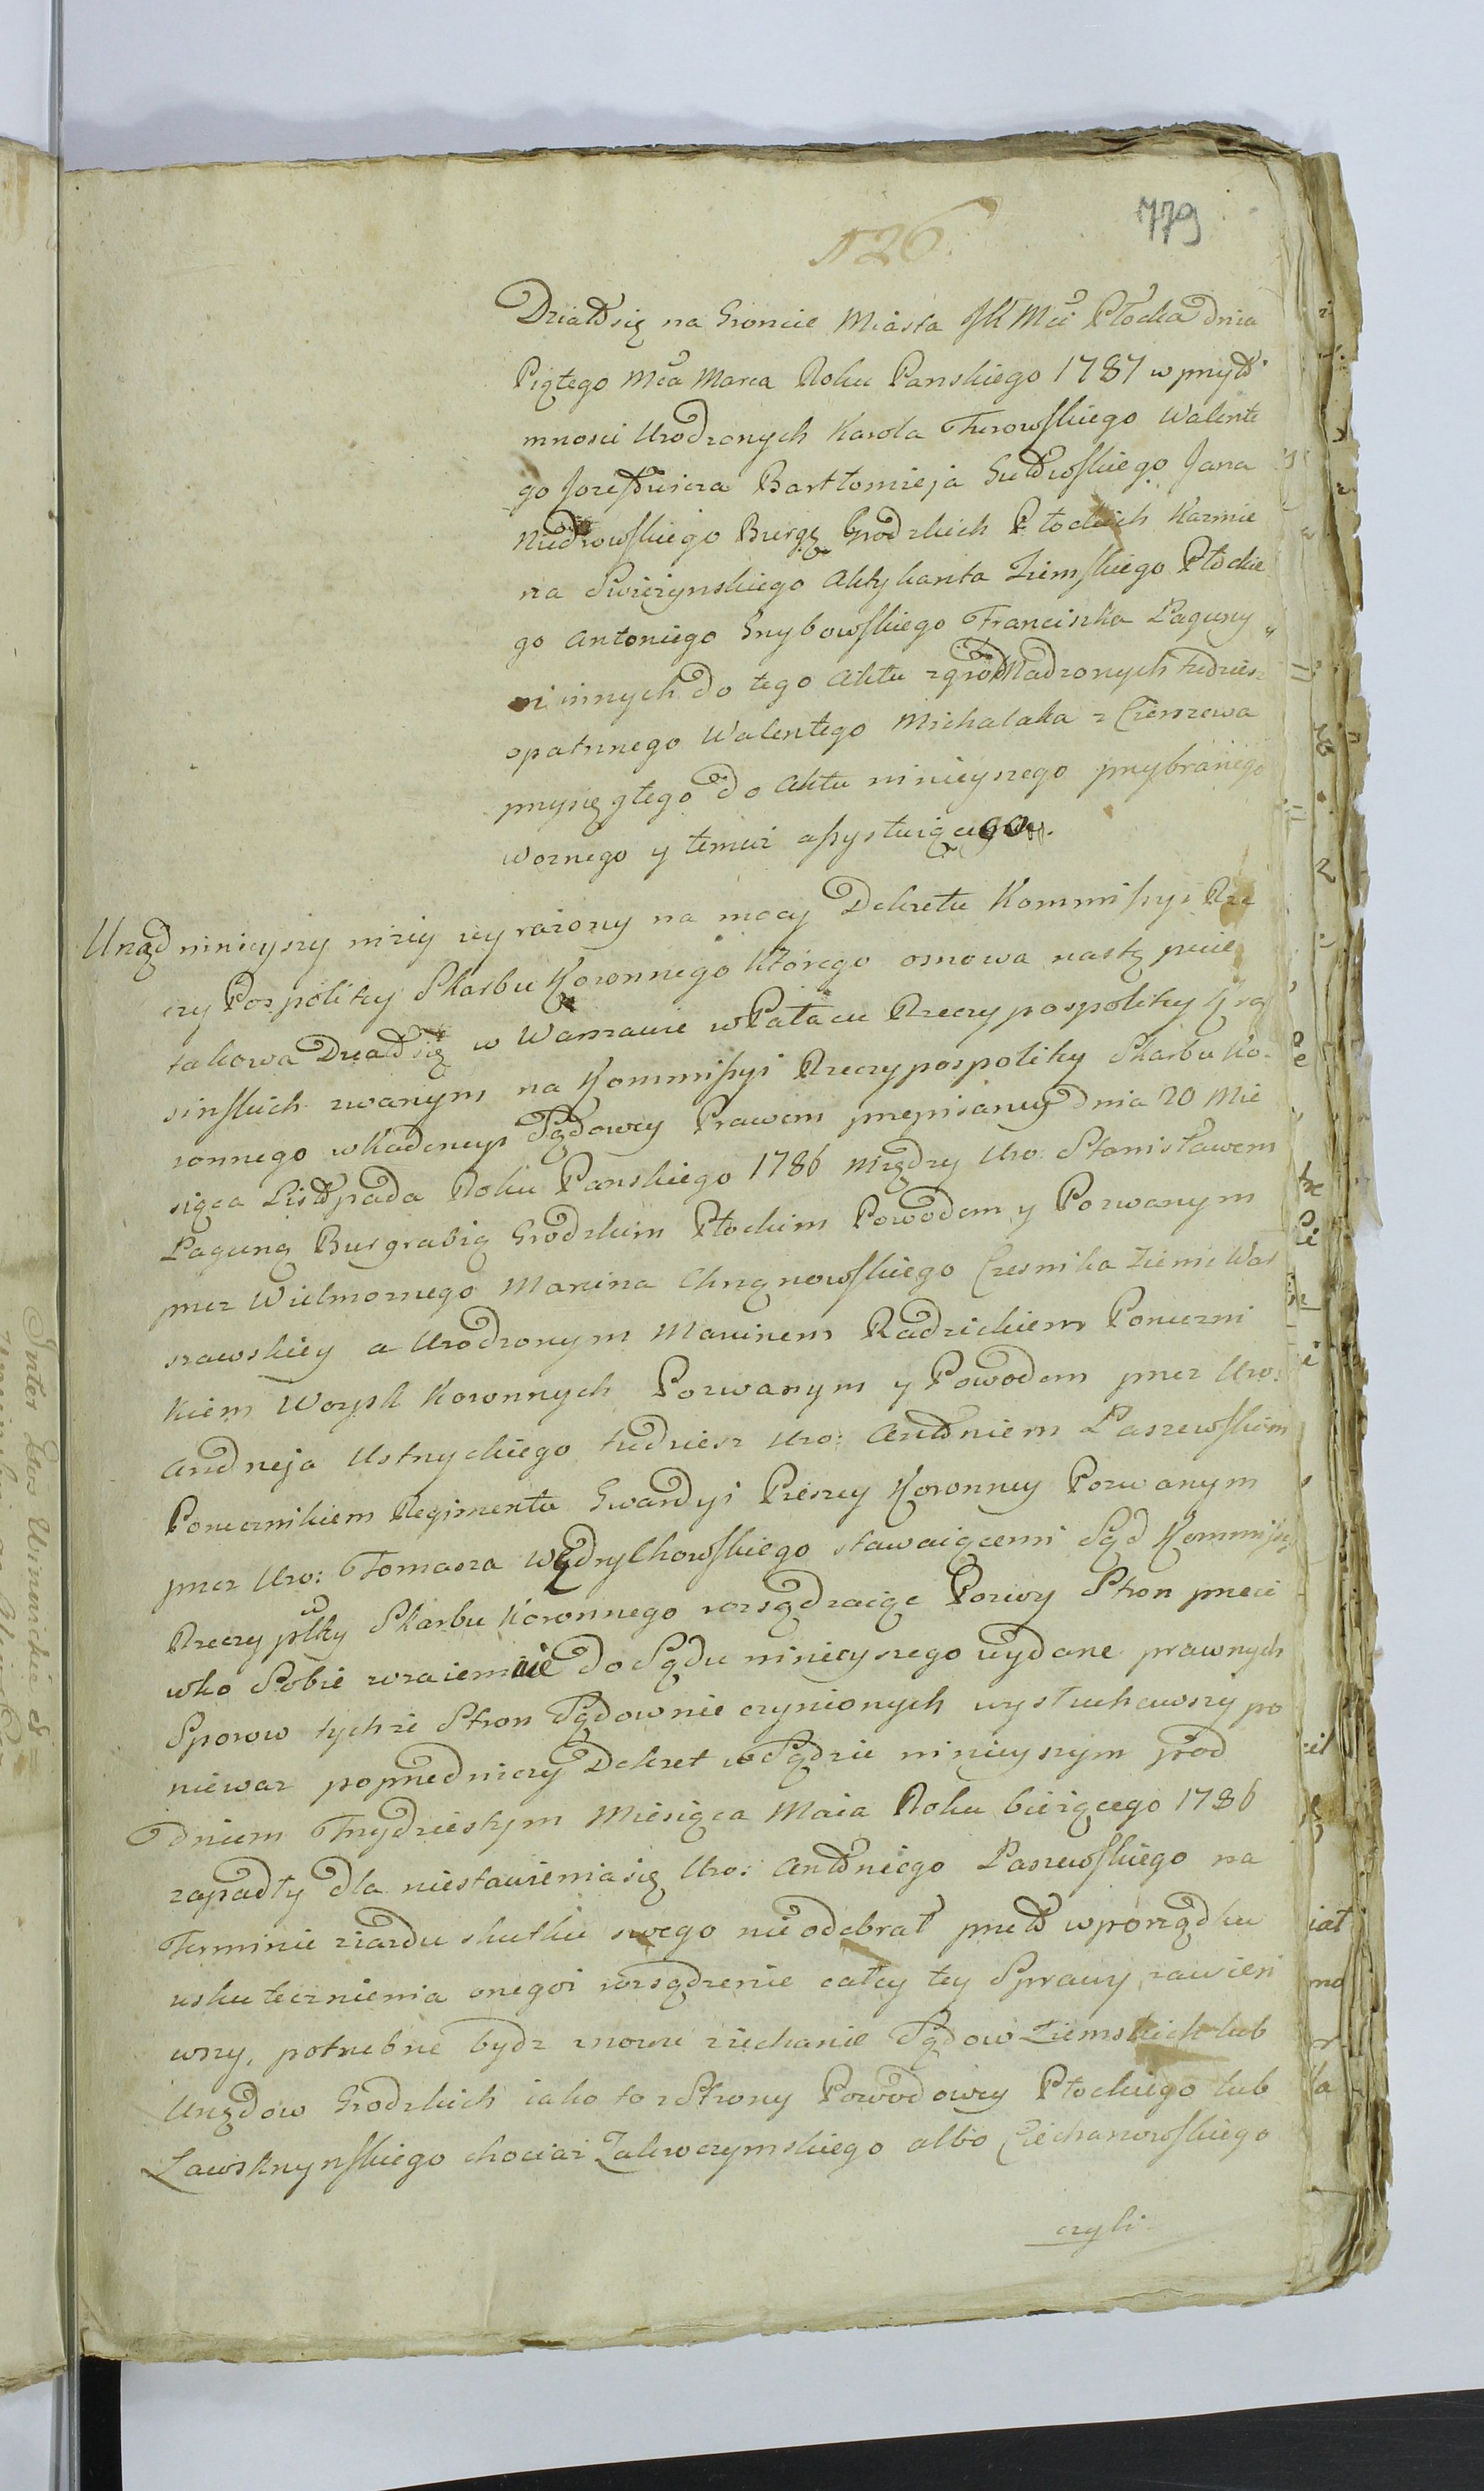 126
779
Działo się na Groncie Miasta JK Mci Płocka dnia
Piątego Mca Marca Roku Panskiego 1787 w przyto
mnosci Urodzonych Karola Turowskiego Walente
go Bartłomieja Jana
Burgę Grodzkich Płockich Kazmie
rza Swiezynskiego Aktykanta Ziemskiego Płockie
go Antoniego Grzybowskiego Franciszka Laguny
i innych do tego Aktu zgromadzonych tudziesz
opatrznego Walentego Michalaka z Ciemzewa
przysięgłego do Aktu ninieyszego przybranego
woznego y temuż assystuiącego
Urząd ninieyszy niżey wyrażony na mocy Dekretu Kommissyi Rze
czy Pospolitey Skarbu Koronnego którego osnowa następuie
takowa Działo się w Warszawie w Pałacu Rzeczypospolitey Kra
sinskich zwanym na Kommissyi Rzeczypospolitey Skarbu Ko
ronnego w Kadencyi Sądowey Prawem przepisaney dnia 20 Mie
siąca Listopada Roku Panskiego 1786 między Uro: Stanisławem
Laguną Burgrabią Grodzkim Płockim Powodem y Pozwanym
przez Wielmoznego Marcina Chrzanowskiego Czesnika Ziemi War
szawskiey a Urodzonym Marcinem Radzickiem Poruczni
kiem Woysk Koronnych Pozwanym y Powodem przez Uro:
Andrzeja Ustrzyckiego tudziesz Uro: Antoniem Laszewskim
Porucznikiem Regimentu Gwardyi Pieszey Koronney Pozwanym
przez Uro: Tomasza Wędrychowskiego stawaiącemi Sąd Kommissyi
Rzeczy plty Skarbu Koronnego rozsądzaiąc Pozwy Stron przeci
wko Sobie wzaiemnie do Sądu ninieyszego wydane prawnych
Sporow tychże Stron Sądownie czynionych wysłuchawszy po
niewaz poprzedniczy Dekret w Sądzie ninieyszym pod
Dniem Trzydziestym Miesiąca Maia Roku bieżącego 1786
zapadły dla niestawienia się Uro: Antoniego Laszewskiego na
Terminie ziazdu skutku swego nie odebrał przeto w porządku
uskutecznienia onegoż rozsądzenie całey tey Sprawy zawiesi
wszy, potrzebne bydz znowu ziechanie Sądow Ziemskich lub
Urzędow Grodzkich iako to z Strony Powodowey Płockiego lub
Zawskrzynskiego chociaż Zakroczymskiego albo Ciechanowskiego
czyli